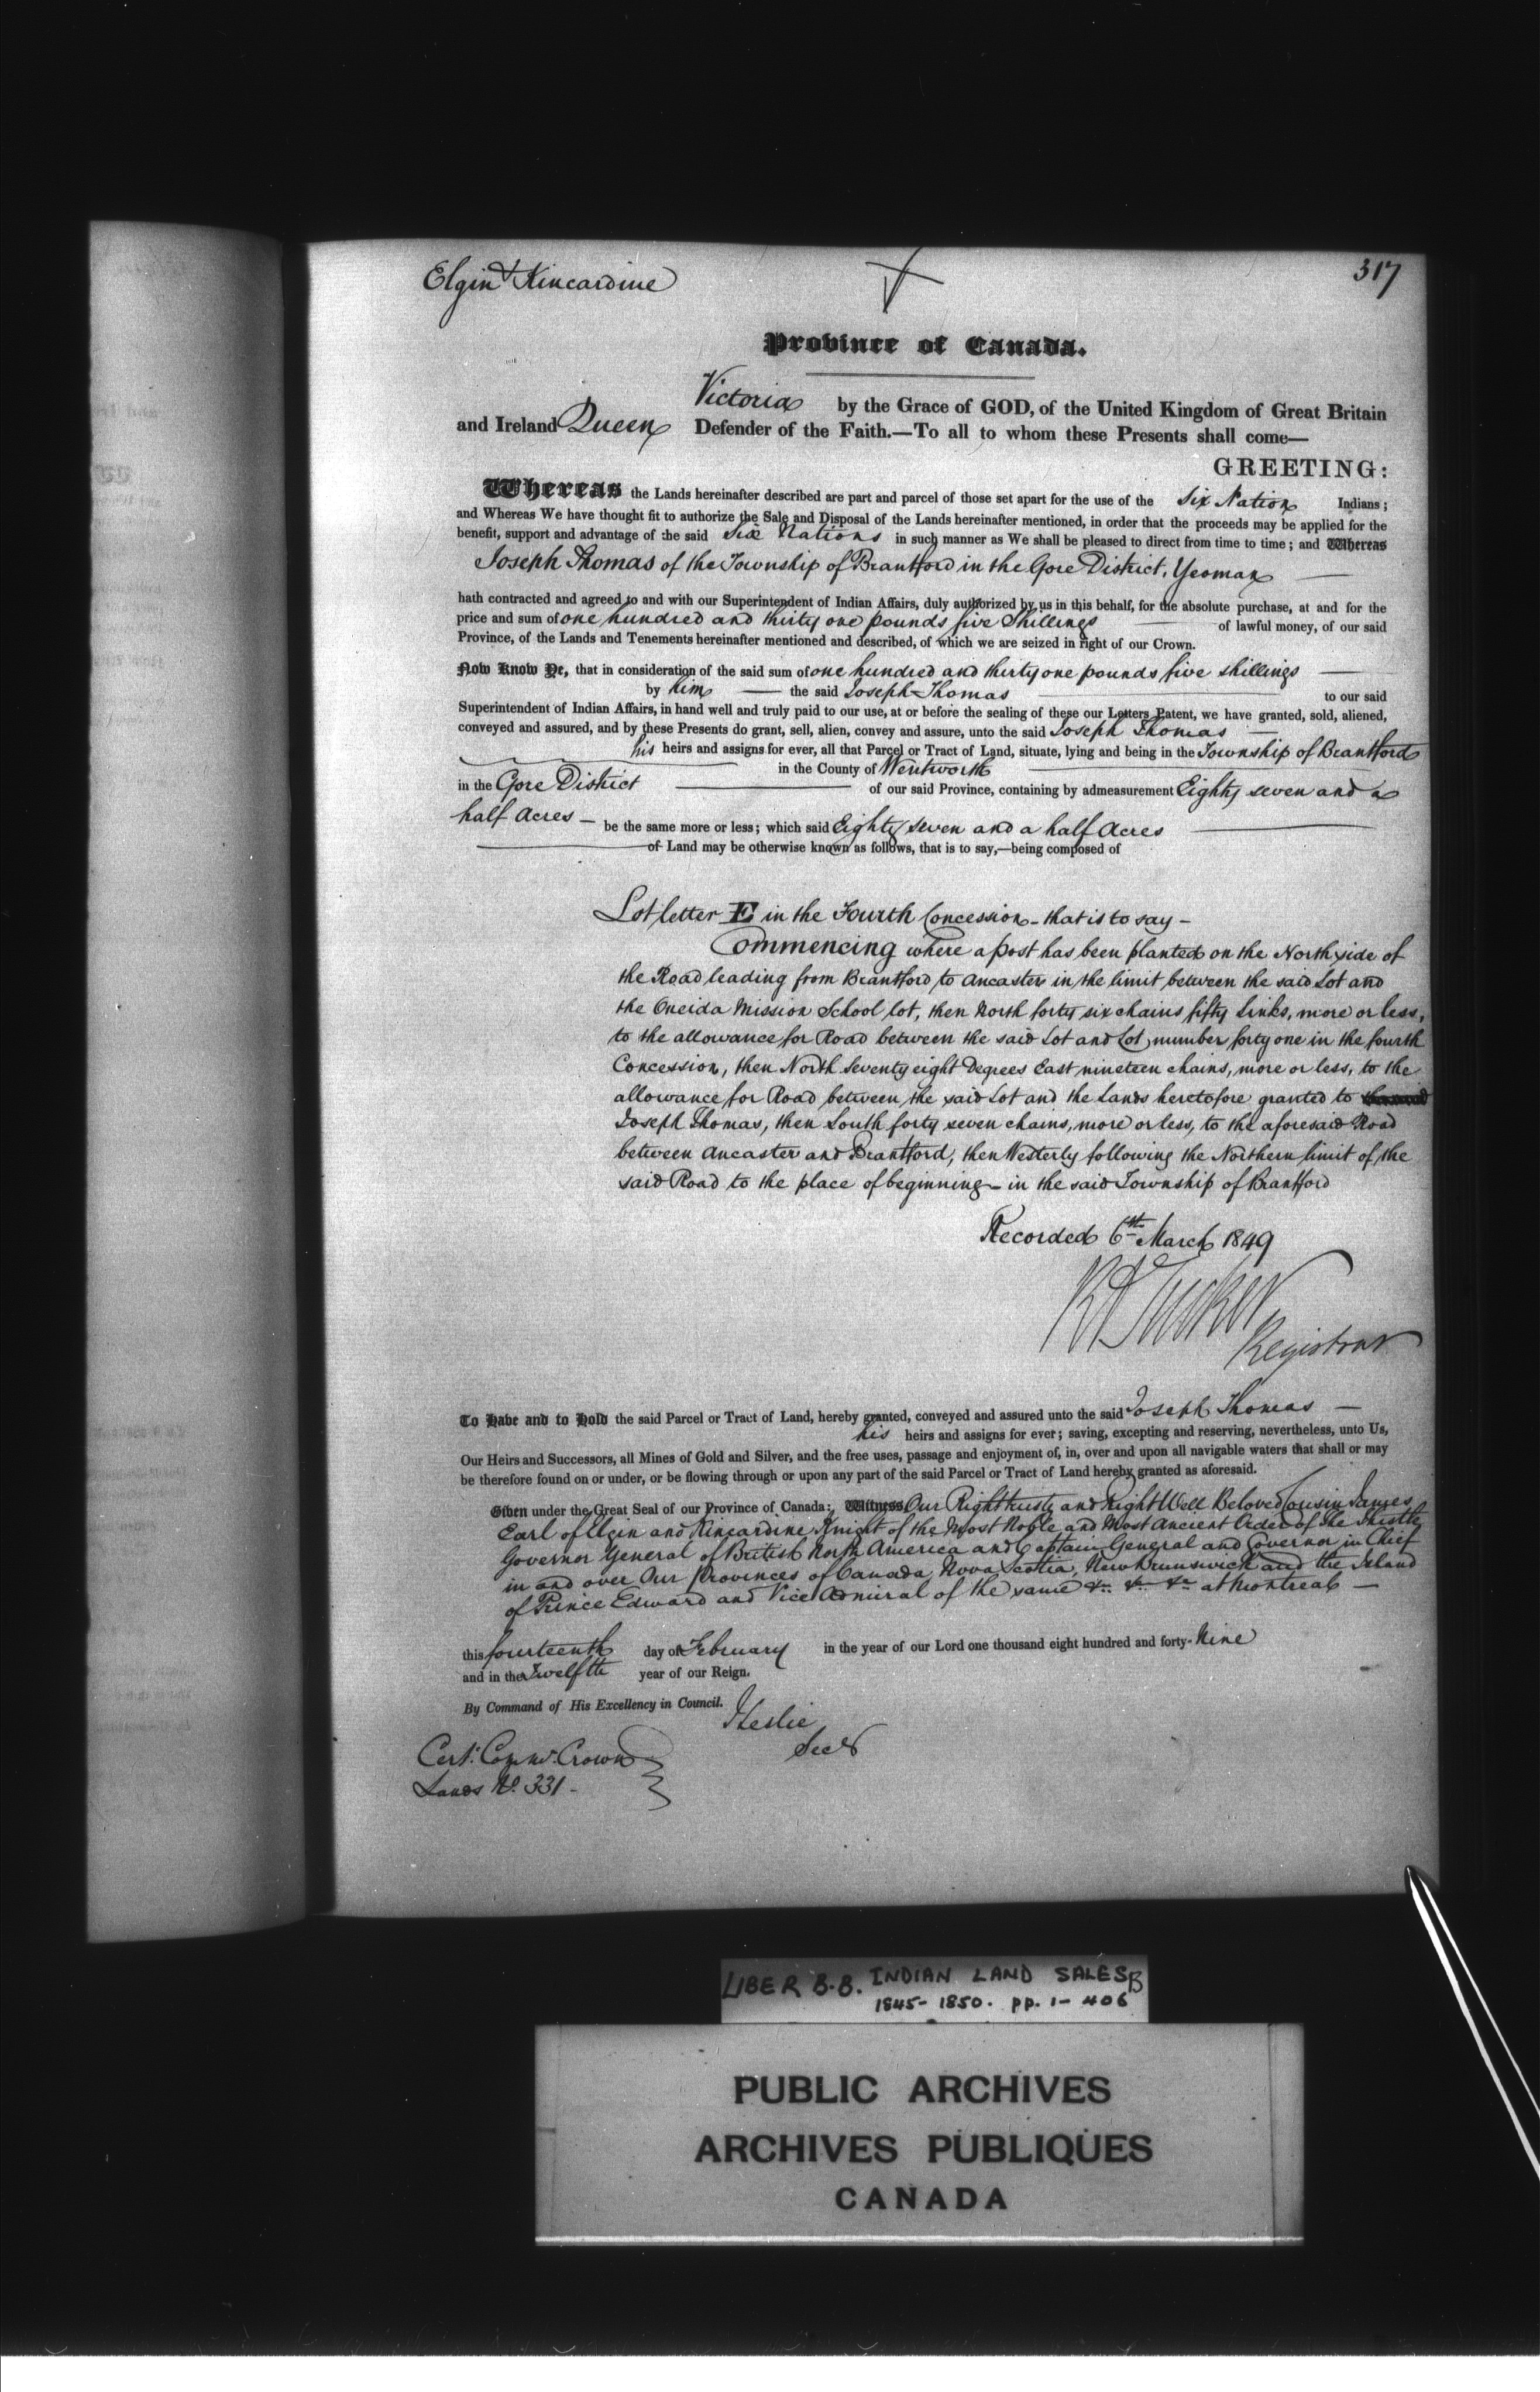 Elgin & Kincardine
317
Province of Canada.
Victoria by the Grace of GOD, of the United Kingdom of Great Britain
and Ireland Queen Defender of the Faith.—To all to whom these Presents shall come—
GREETING:
Whereas the Lands hereinafter described are part and parcel of those set apart for the use of the Six Nation Indians;
and Whereas We have thought fit to authorize the Sale and Disposal of the Lands hereinafter mentioned, in order that the proceeds may be applied for the
benefit, support and advantage of the said Six Nations in such manner as We shall be pleased to direct from time to time; and Whereas
Joseph Thomas of the Township of Brantford in the Gore District, Yeoman —
hath contracted and agreed to and with our Superintendent of Indian Affairs, duly authorized by us in this behalf, for the absolute purchase, at and for the
price and sum of one hundred and thirty one pounds five Shillings — of lawful money, of our said
Province, of the Lands and Tenements hereinafter mentioned and described, of which we are seized in right of our Crown.
Now Know Ye, that in consideration of the said sum of one hundred and thirty one pounds five shillings —
by him — the said Joseph Thomas — to our said
Superintendent of Indian Affairs, in hand well and truly paid to our use, at or before the sealing of these our Letters Patent, we have granted, sold, aliened,
conveyed and assured, and by these Presents do grant, sell, alien, convey and assure, unto the said Joseph Thomas —
his heirs and assigns for ever, all that Parcel or Tract of Land, situate, lying and being in the Township of Brantford
— in the County of Wentworth —
in the Gore District — of our said Province, containing by admeasurement Eighty seven and a
half Acres — be the same more or less; which said Eighty seven and a half Acres —
— of Land may be otherwise known as follows, that is to say,—being composed of
Lot letter E in the Fourth Concession – that is to say –
Commencing where a post has been planted on the North side of
the Road leading from Brantford to Ancaster in the limit between the said Lot and
the Oneida Mission School lot, then North forty six chains fifty links, more or less,
to the allowance for Road between the said Lot and Lot number forty one in the fourth
Concession, then North Seventy eight Degrees East nineteen chains, more or less, to the
allowance for Road between the said Lot and the Lands heretofore granted to
Joseph Thomas, then South forty seven chains, more or less, to the aforesaid Road
between Ancaster and Brantford, then Westerly following the Northern limit of the
said Road to the place of beginning – in the said Township of Brantford
Recorded 6th March 1849
R A Tucker
Registrar
To Have and to Hold the said Parcel or Tract of Land, hereby granted, conveyed and assured unto the said Joseph Thomas —
his heirs and assigns for ever; saving, excepting and reserving, nevertheless, unto Us,
Our Heirs and Successors, all Mines of Gold and Silver, and the free uses, passage and enjoyment of, in, over and upon all navigable waters that shall or may
be therefore found on or under, or be flowing through or upon any part of the said Parcel or Tract of Land hereby granted as aforesaid.
Given under the Great Seal of our Province of Canada: Witness, Our Right trusty and Right Well Beloved Cousin James
Earl of Elgin and Kincardine Knight of the Most Noble and Most Ancient Order of the Thistle
Governor General of British North America and Captain General and Governor in Chief
in and over Our Provinces of Canada, Nova Scotia, New Brunswick and the Island
of Prince Edward and Vice Admiral of the same &c &c &c at Montreal —
this fourteenth day of February in the year of our Lord one thousand eight hundred and forty-Nine
and in the Twelfth year of our Reign.
By Command of His Excellency in Council.
J Leslie
Secy
Cert. Commr. Crown
Lands No. 331 –
LIBER B.B. INDIAN LAND SALES B
1845- 1850. pp. 1- 406
PUBLIC ARCHIVES
ARCHIVES PUBLIQUES
CANADA